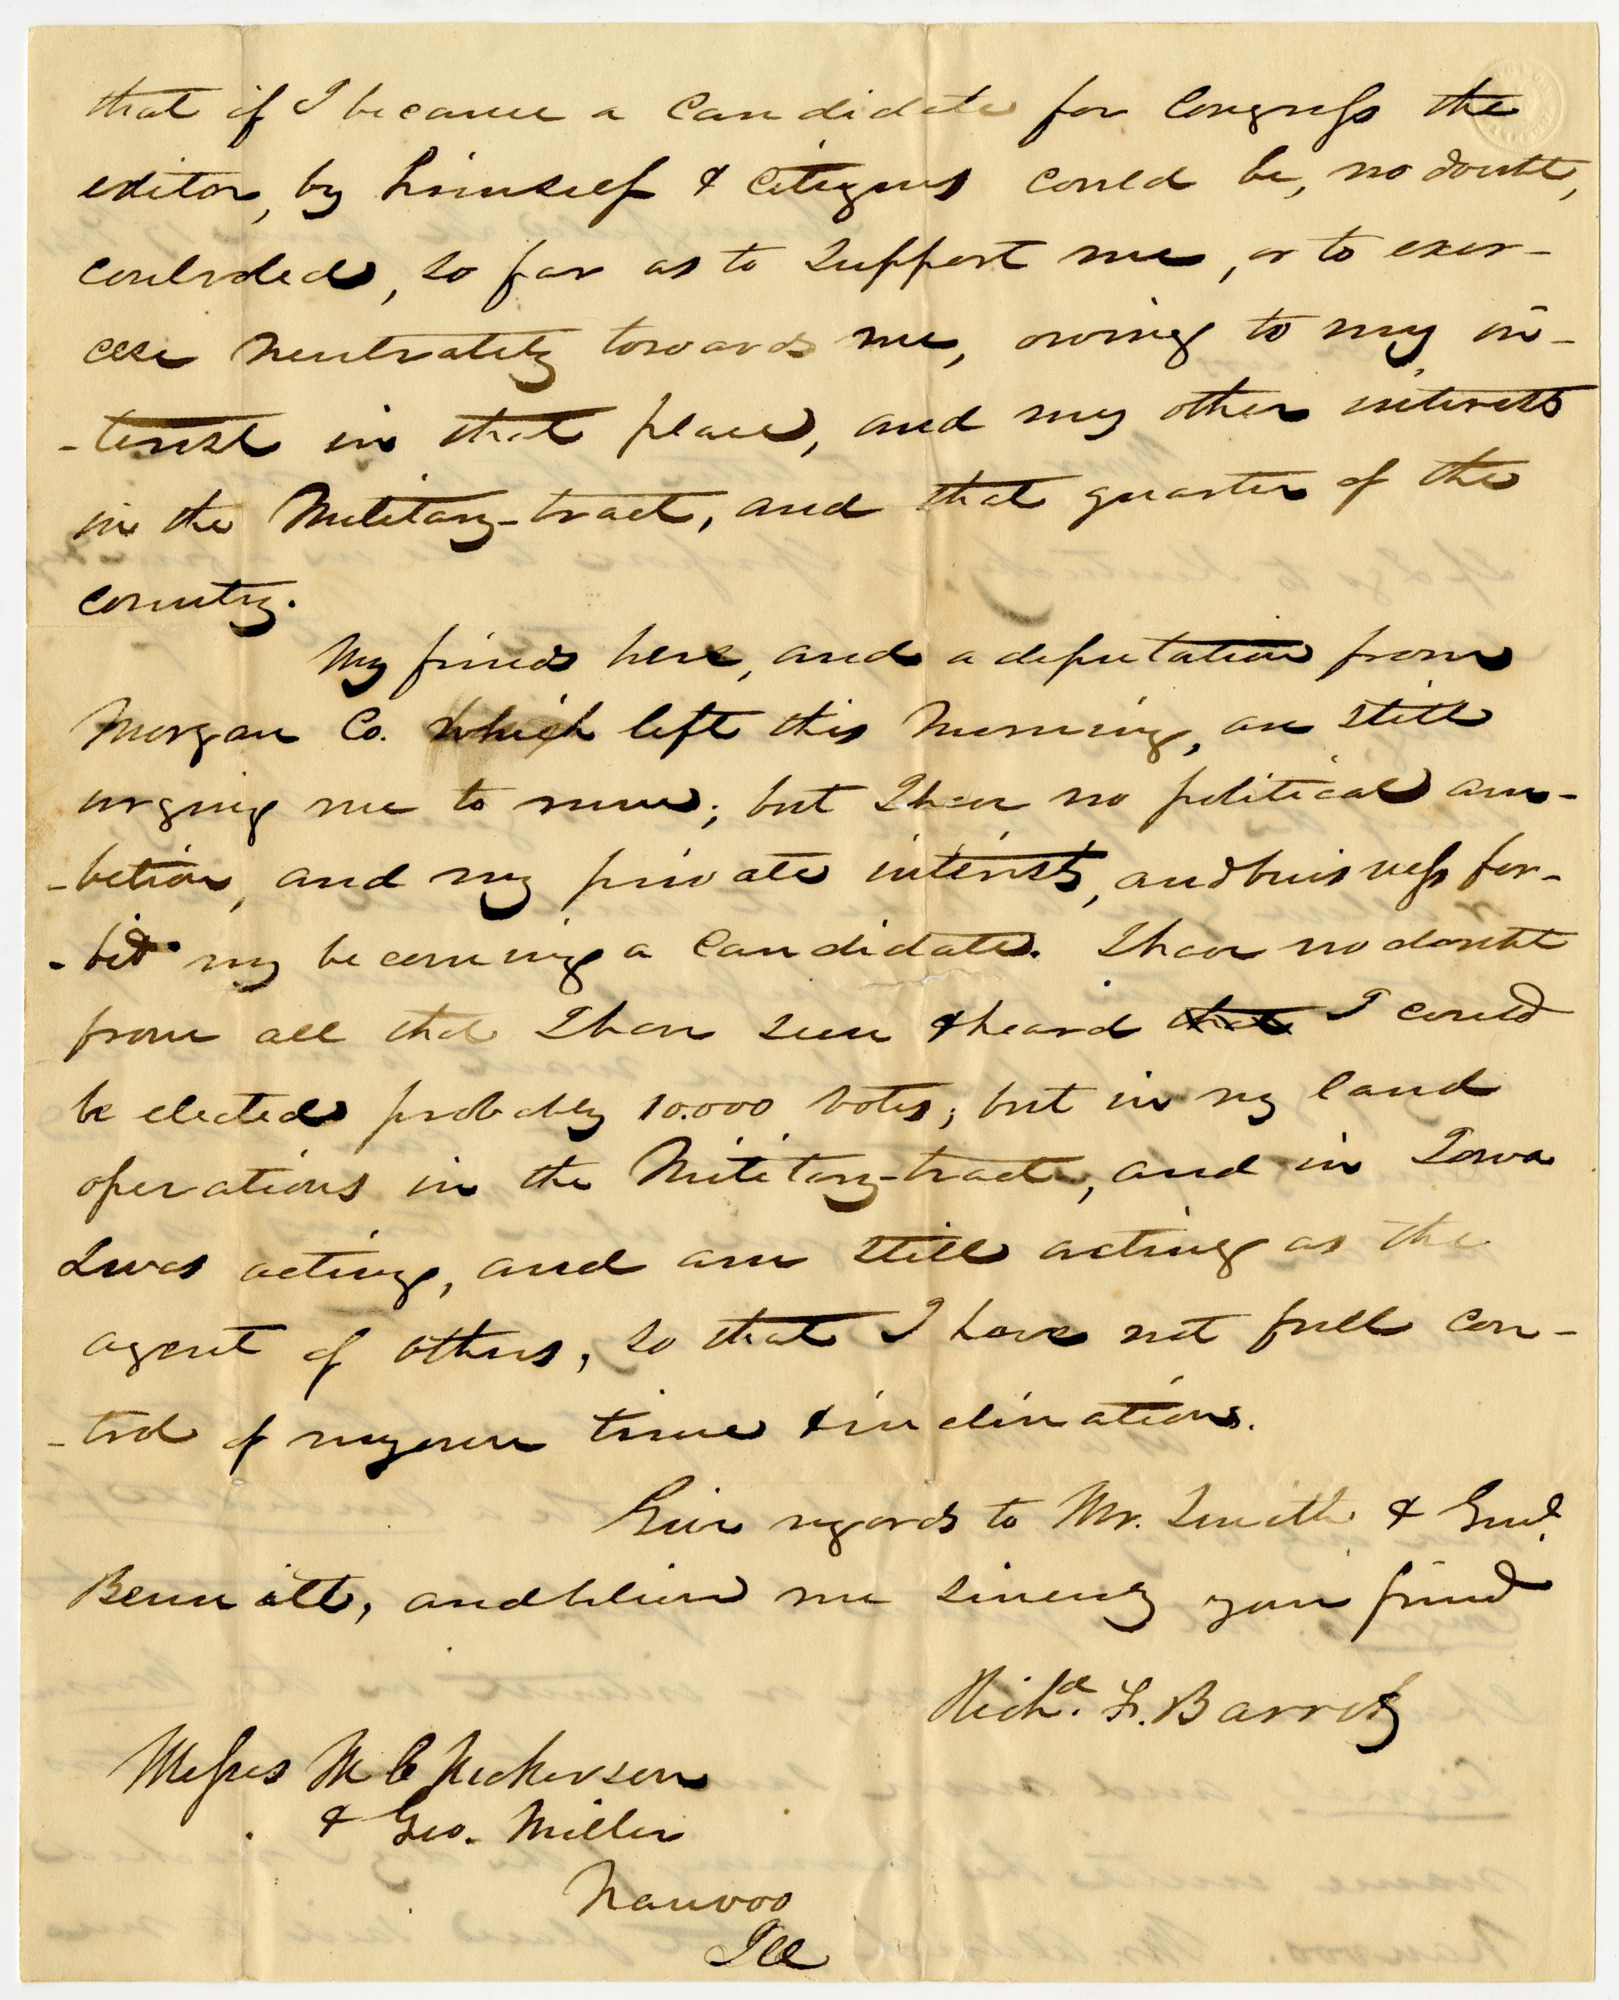 that if I became a candidate for Congress the
editor, by himself & citizens could be, no doubt,
controled, so far as to support me, or to exer-
cise neutrality towards me, owing to my in-
-terest in that place, and my other interests
in the Military-tract, and that quarter of the
country.
My friends here, and a deputation from
Morgan Co. which left this morning, are still
urging me to run; but I have no political am-
-bition, and my private interests, and buisness for-
-bid my becoming a candidate. I have no doubt
from all that I have seen & heard that I could
be elected probably 10.000 votes; but in my land
operations in the Military-tract, and in Iowa
I was acting, and am still acting as the
agent of others, so that I have not full con-
-trol of my own time & inclinations.
Give regards to Mr. Smith & Genl.
Bennett, and believe me sincerely your friend
Richd. F. Barrett
Messrs M C Nickerson
& Geo. Miller
Nauvoo
Ill